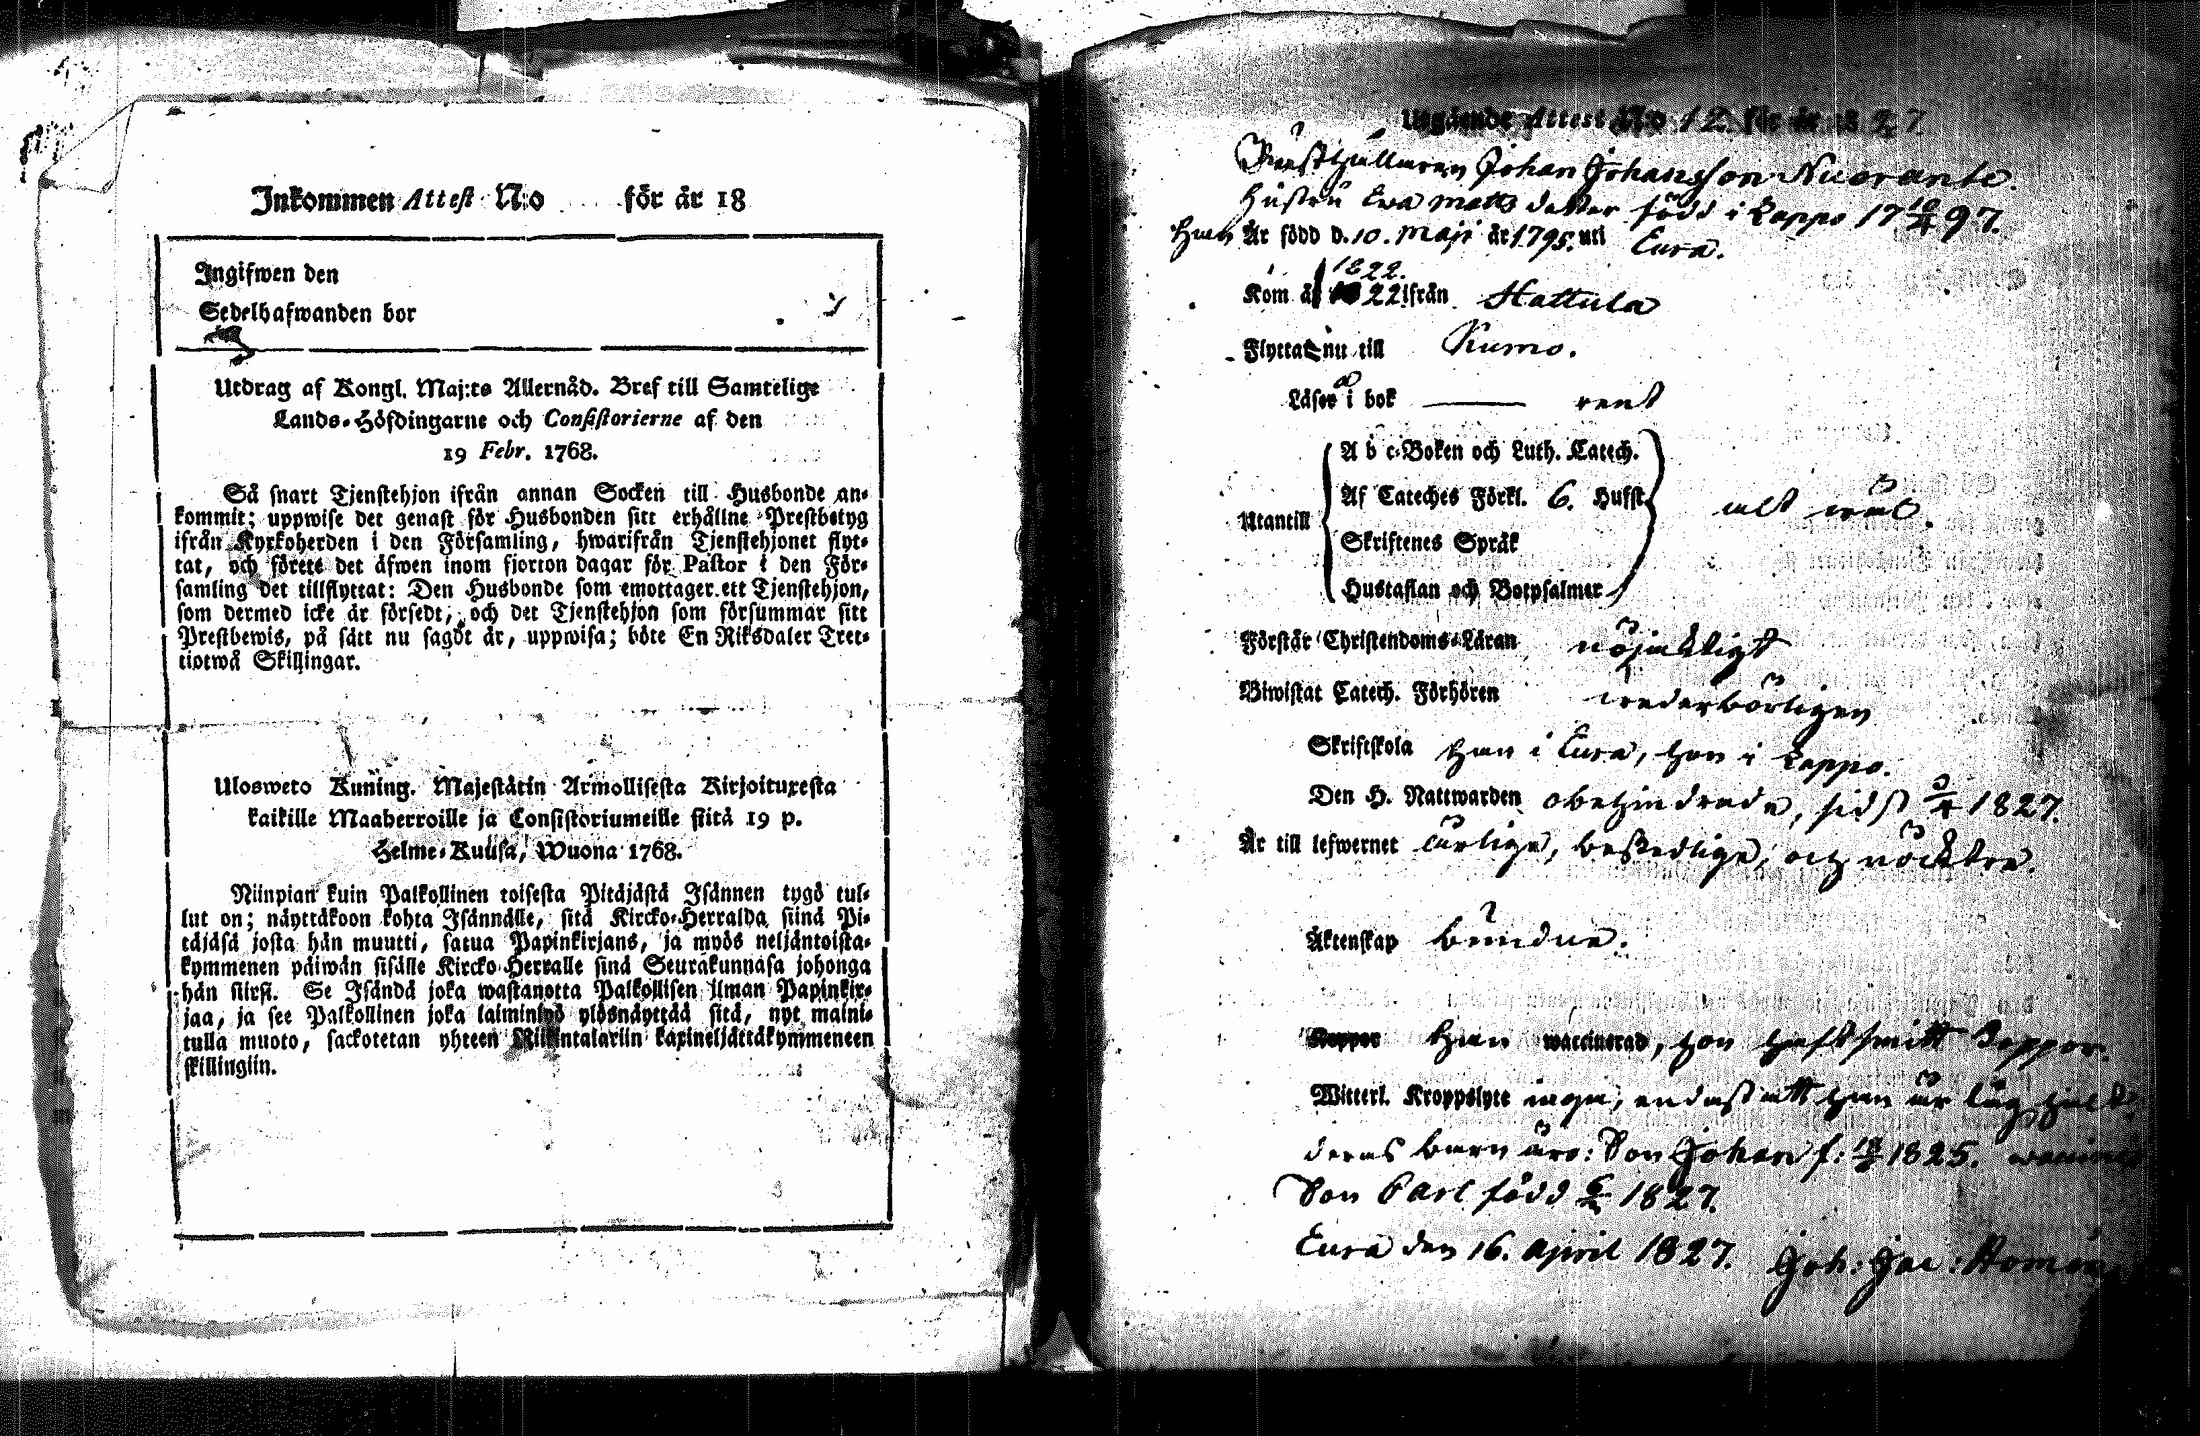 Inkommen Attest N:o för år 18
Ingifwen den
Sedelhafwanden bor
Utdrag af Kongl. Maj:ts Allernåd. Bref till Samtelige
Lands-Höfdingarne och Consistorierne af den
19 Febr. 1768.
Så snart Tjenstehjon ifrån annan Socken till Husbonde an-
kommit; uppwise det genast för Husbonden sitt erhållne Prestbetyg
ifrån Kyrkoherden i den Församling, hwarifrån Tjenstehjonet flyt-
tat, och förete det äfwen inom fjorton dagar för Pastor i den För-
samling det tillflyttat: Den Husbonde som emottager ett Tjenstehjon,
som dermed icke är försedt, och det Tjenstehjon som försummar sitt
Prestbewis, på sätt nu sagdt är, uppwisa; böte En Riksdaler Tret-
tiotwå Skillingar.
Ulosweto Kuning. Majestätin Armollisesta Kirjoituxesta
kaikille Maaherroille ja Consistoriumeille siitä 19 p.
Helme-Kuusa, Wuona 1768.
Niinpian kuin Palkollinen toisesta Pitäjästä Isännen tygö tul-
lut on; näyttäkoon kohta Isännälle, sitä Kircko-Herralda siinä Pi-
täjäsä josta hän muutti, satua Papinkirjans, ja myös neljäntoista-
kymmenen päiwän sisälle Kircko-Herralle sinä Seurakunnasa johonga
hän siirsi. Se Isändä joka wastanotta Palkollisen ilman Papinkir-
jaa, ja see Palkollinen joka laiminlyö ylösnäyttää sitä, nyt maini-
tulla muoto, sackotetan yhteen Riikintalariin kaxineljättäkymmeneen
skillingiin.
Utgående Attest N:o 12 för år 1827
Rusthållaren Johan Johansson Nuorante.
Hustru Eva Matts detter född i Lappo 17 10/4 97.
Han Är född d. 10. Maji år 1795. uti Eura.
1822.
Kom år 22 ifrån Hattula
Flytta nu till Kumo.
Läser i bok — rent
Utantill
A b c-Boken och Luth. Catech.
Af Cateches Förkl. 6. Hufst.
Skriftenes Språk
Hustaflan och Botpsalmer
alt wäl.
Förstår Christendoms-Läran nöjaktigt
Biwistat Catech. Förhören wederbörligen
Skriftskola Han i Eura, hon i Lappo.
Den H. Nattwarden obehindrade, sidst /4 1827.
Är till lefwernet ärlige, beskedlige, och nöcktre.
Äktenskap bundne.
Koppor Han waccinerad, hon haft smitt koppor.
Witterl. Kroppslyte inga, endast att han är låghalt.
deras barn äro: Son Johan f: 1825.
Son Carl född 1827.
Eura den 16. April 1827. Joh: Jac: Homén